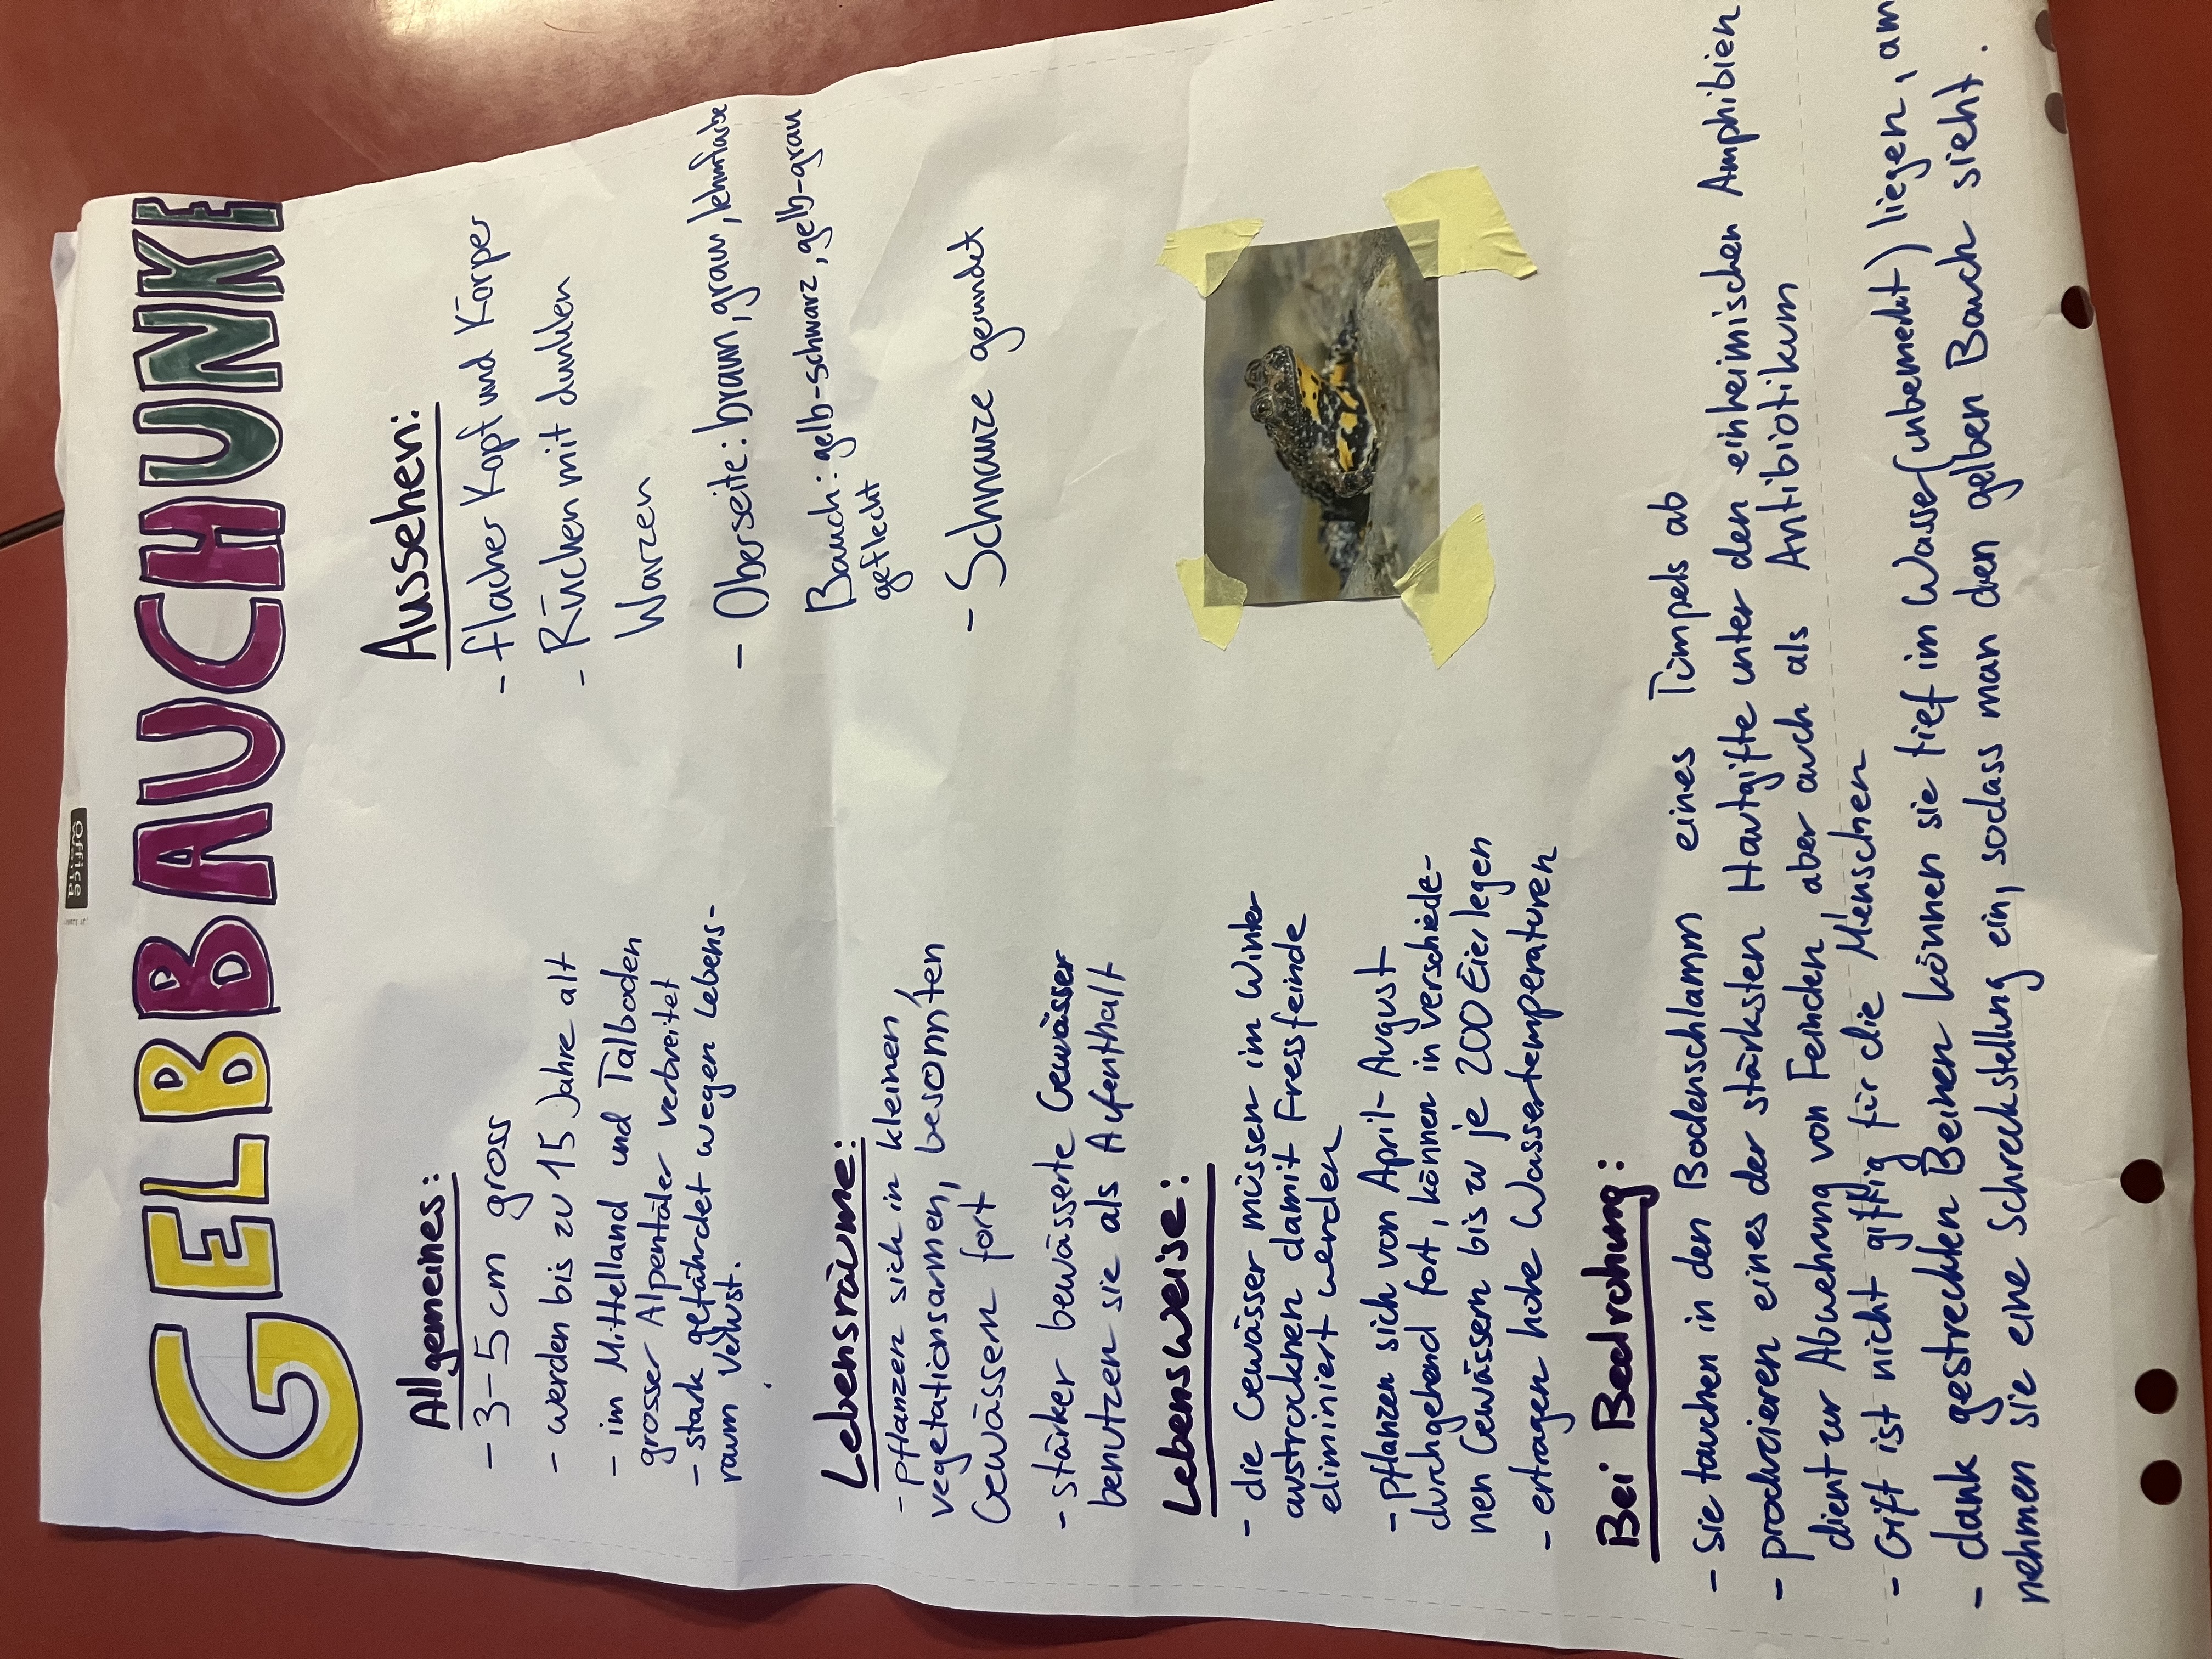 GELBBAUCHUNKE
Allgemeines:
- 3-5 cm gross
- werden bis zu 15 Jahre alt
- im Mittelland und Talboden
grosser Alpentäler verbreitet
- stark gefährdet wegen Lebens-
raum Verlust.
Aussehen:
- flacher Kopf und Körper
- Rücken mit dunklen
Warzen
- Oberseite: braun, grau, lehmfarbe
Bauch: gelb-schwarz, gelb-grau
gefleckt
- Schnauze gerundet
Lebensräume:
- pflanzen sich in kleinen,
vegetationsarmen, besonnten
Gewässern fort
- stärker bewässerte Gewässer
benutzen sie als Aufenthalt
Lebensweise:
- die Gewässer müssen im Winter
austrocknen damit Fressfeinde
eliminiert werden
- pflanzen sich von April-August
durchgehend fort, können in verschiede-
nen Gewässern bis zu je 200 Eier legen
- ertragen hohe Wassertemperaturen
Bei Bedrohung:
- Sie tauchen in den Bodenschlamm eines Tümpels ab
- produzieren eines der stärksten Hautgifte unter den einheimischen Amphibien
dient zur Abwehrung von Feinden aber auch als Antibiotikum
- Gift ist nicht giftig für die Menschen
- dank gestreckten Beinen können sie tief im Wasser (unbemerkt) liegen, am
nehmen sie eine Schreckstellung ein, sodass man den gelben Bauch sieht.
Office